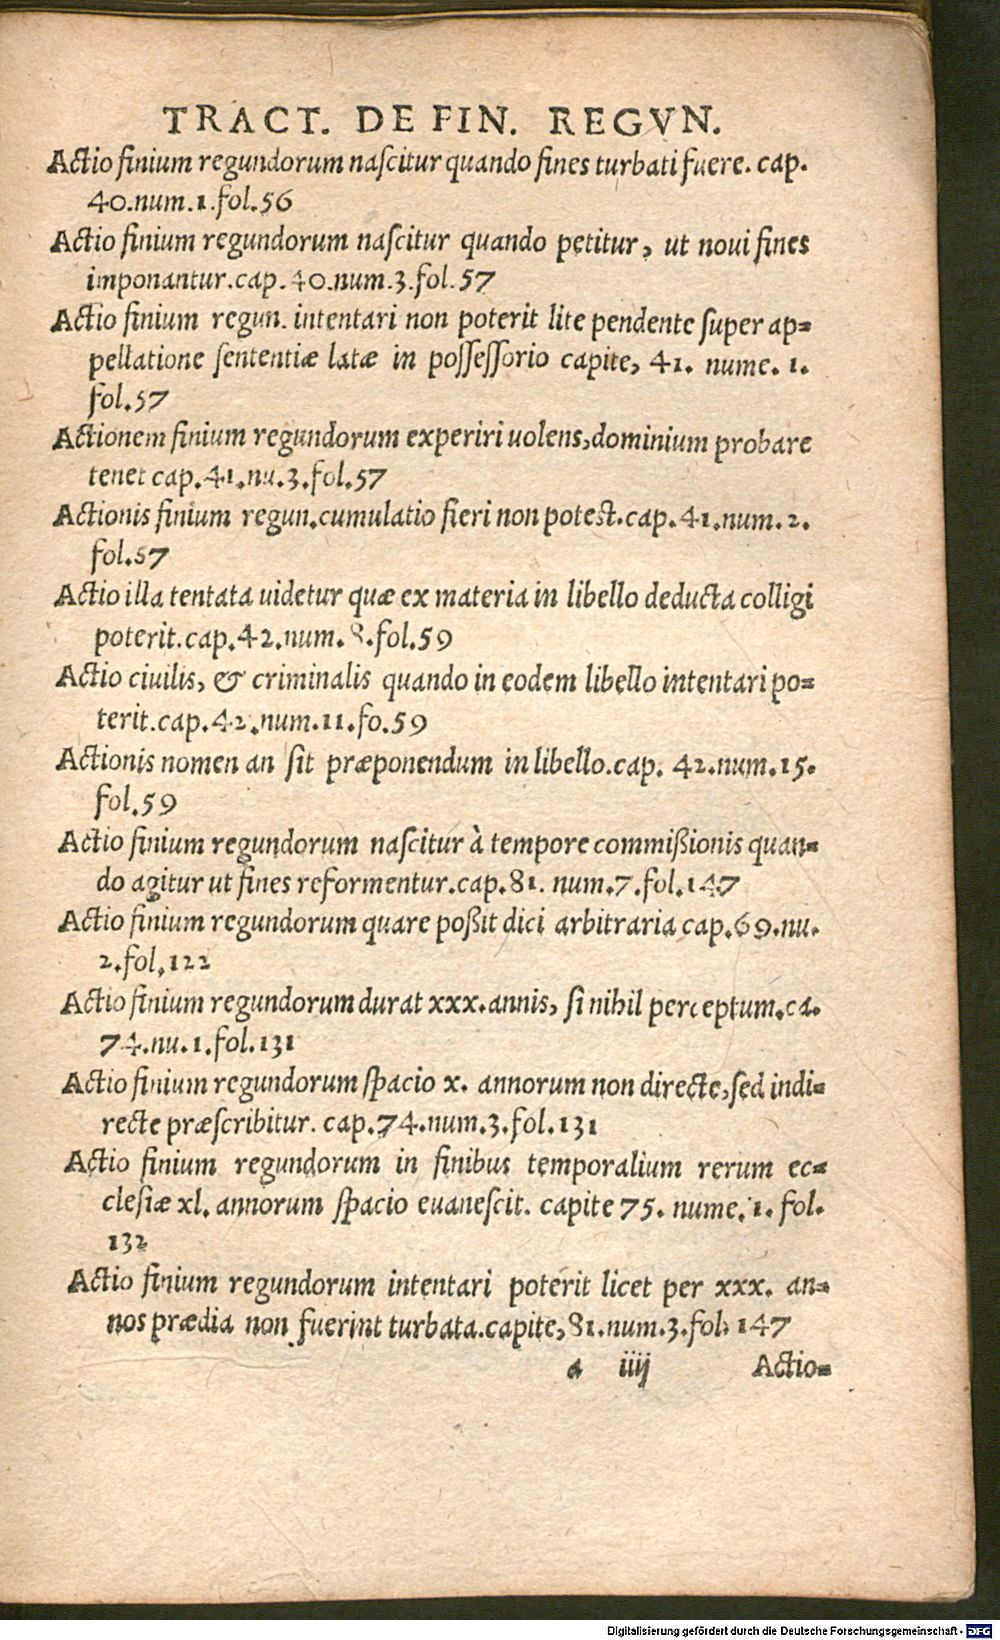 TRACT. DE FIN. REGVN.
Actio finium regundorum naſcitur quando fines turbati fuere. cap.
40.num.1.fol.56
Actio finium regundorum naſcitur quando petitur, ut noui fines
imponantur.cap.40.num.3.fol.57
Actio finium regun. intentari non poterit lite pendente ſuper ap=
pellatione ſententiæ latæ in poſſeſſorio capite, 41. nume. 1.
fol.57
Actionem finium regundorum experiri uolens,dominium probare
tenet cap.41.nu.3.fol.57
Actionis finium regun.cumulatio fieri non poteſt.cap.41.num.2.
fol.57
Actio illa tentata uidetur quæ ex materia in libello deducta colligi
poterit.cap.42.num.8.fol.59
Actio ciuilis, & criminalis quando in eodem libello intentari po=
terit.cap.42.num.11.fo.59
Actionis nomen an ſit præponendum in libello.cap. 42.num.15.
fol.59
Actio finium regundorum naſcitur à tempore commißionis quan=
do agitur ut fines reformentur.cap.81. num.7.fol.147
Actio finium regundorum quare poßit dici arbitraria cap.69.nu.
2.fol.122
Actio finium regundorum durat xxx.annis, ſi nihil perceptum.ca.
74.nu.1.fol.131
Actio finium regundorum ſpacio x. annorum non directe,ſed indi=
recte præſcribitur. cap.74.num.3.fol.131
Actio finium regundorum in finibus temporalium rerum ec=
cleſiæ xl. annorum ſpacio euaneſcit. capite 75. nume. 1. fol.
132
Actio finium regundorum intentari poterit licet per xxx. an=
nos prædia non fuerint turbata.capite,81.num.3.fol.147
a iiij Actio=
Digitalisierung gefördert durch die Deutsche Forschungsgemeinschaft - DFG